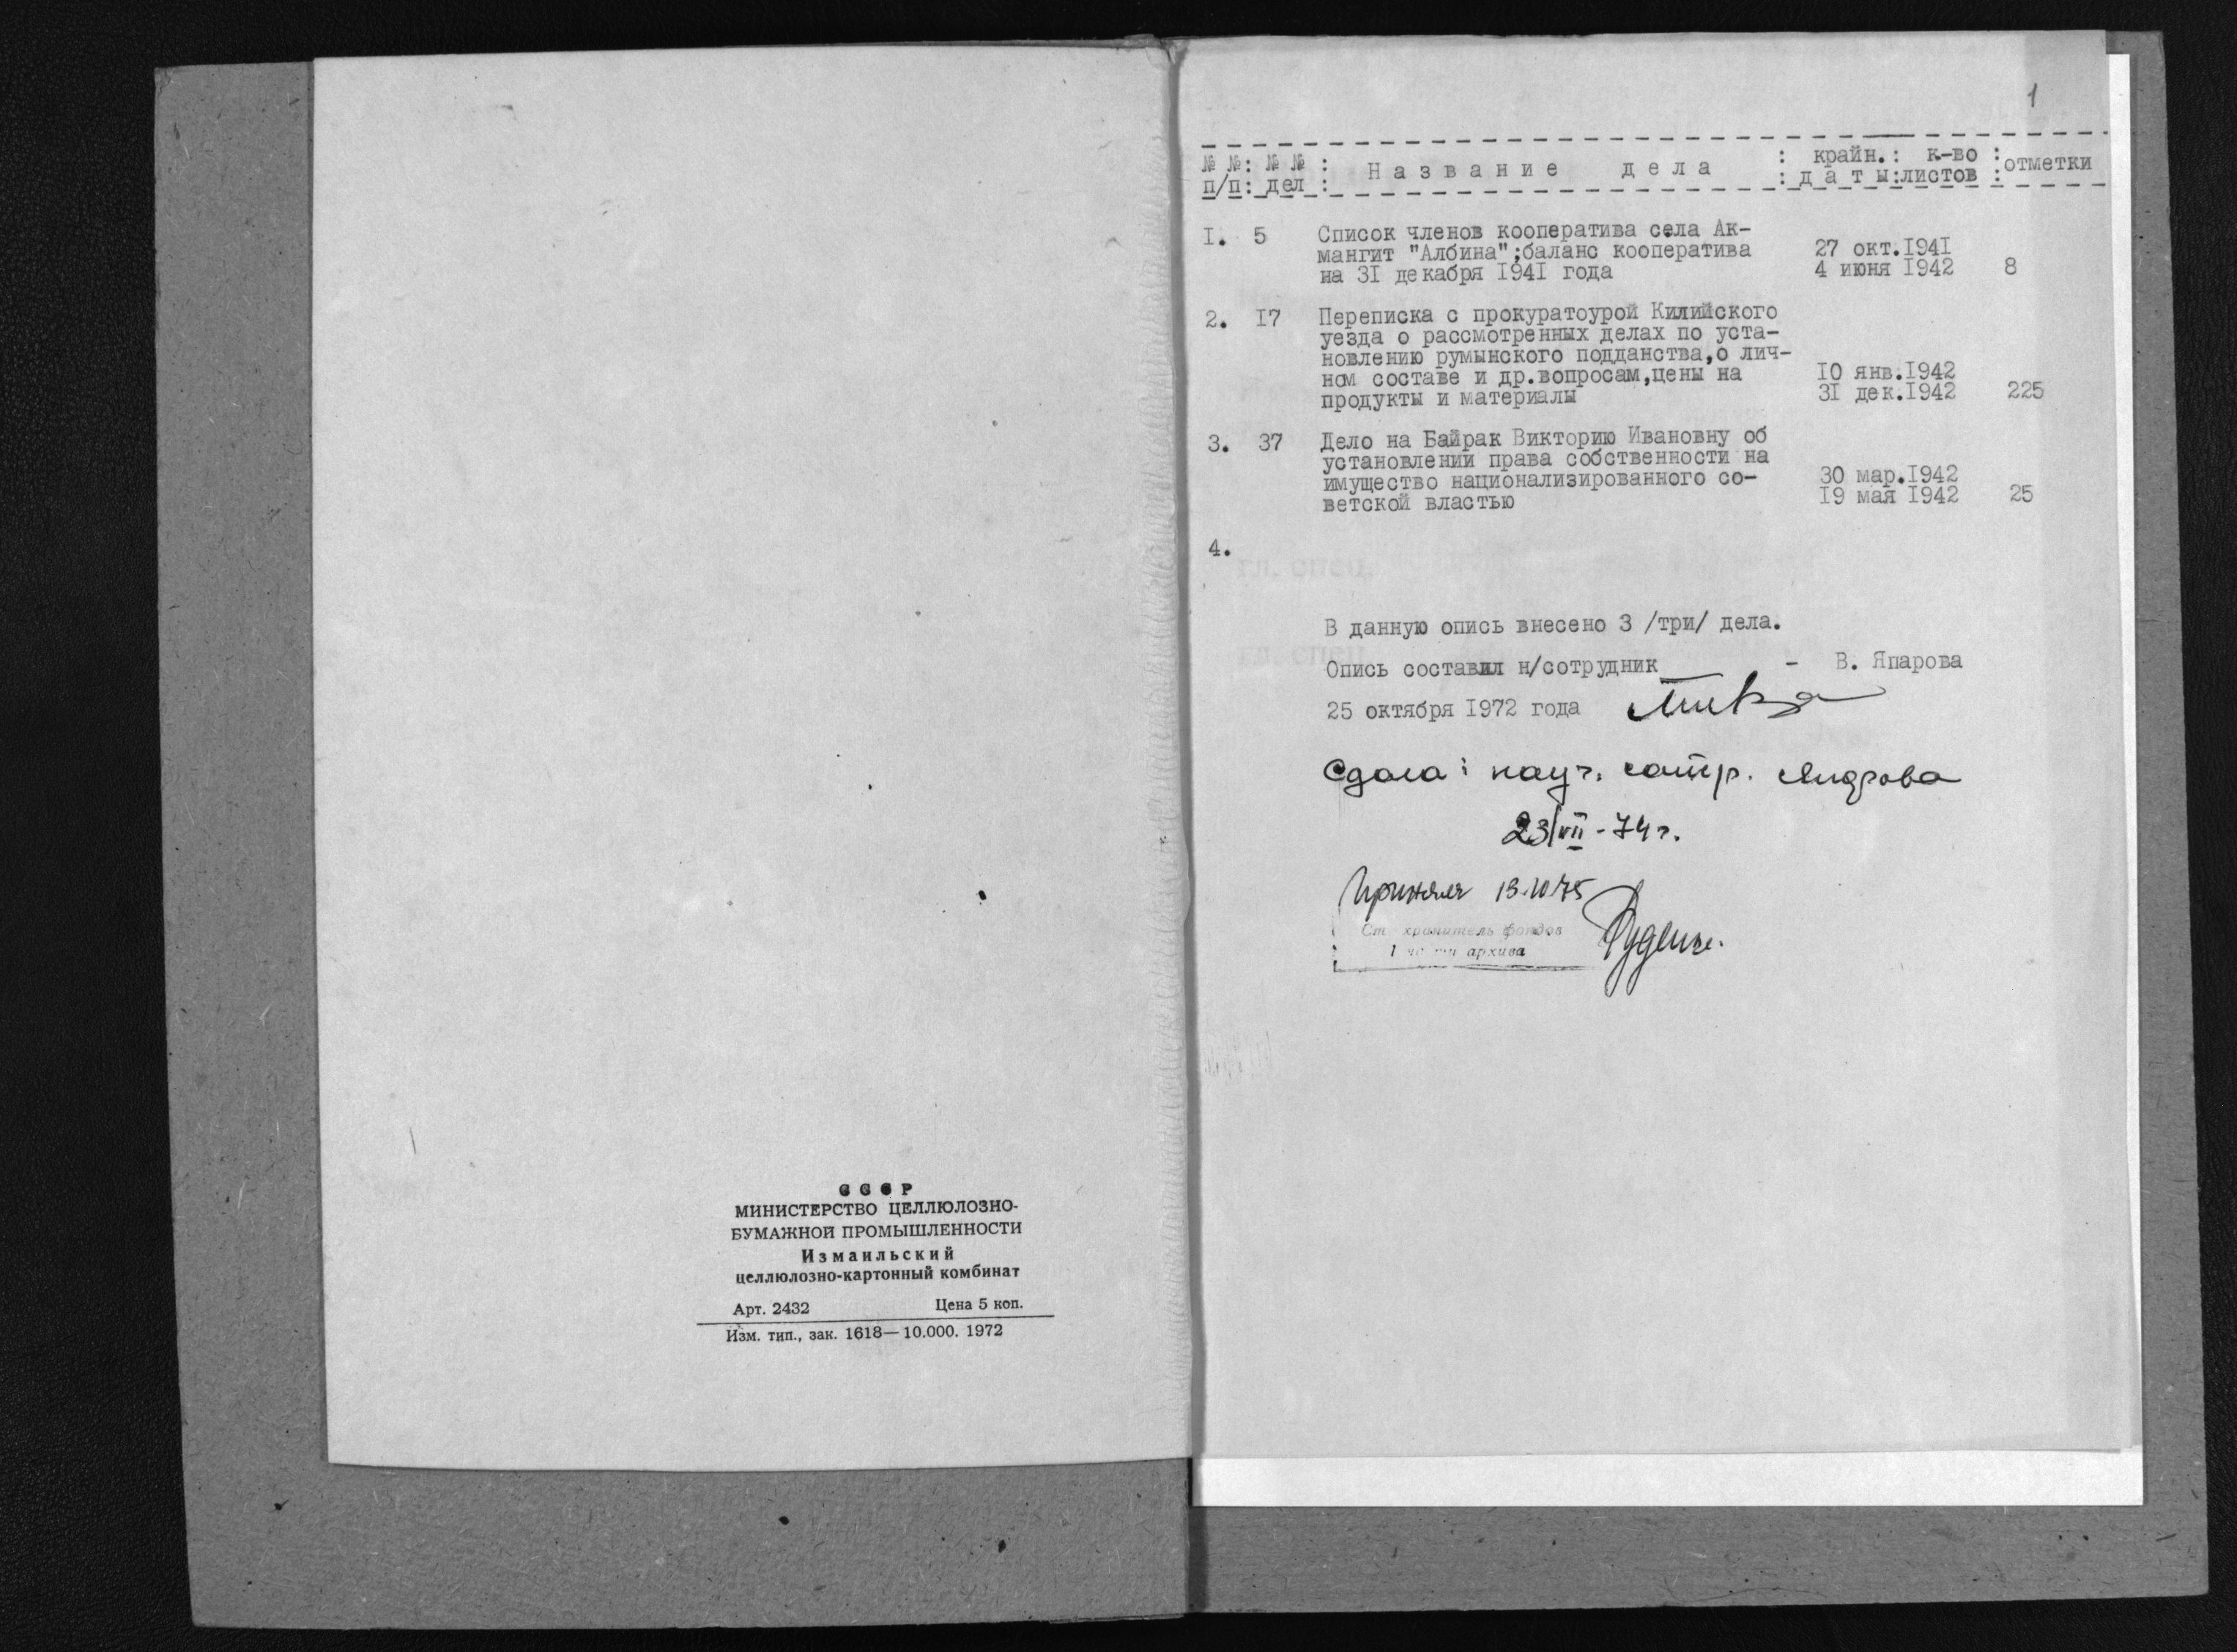 СССР
МИНИСТЕРСТВО ЦЕЛЛЮЛОЗНО-
БУМАЖНОЙ ПРОМЫШЛЕННОСТИ
Измаильский
целлюлозно-картонный комбинат
Арт. 2432 Цена 5 коп.
Изм. тип., зак. 1618—10.000. 1972
1
№ №: № № : Название дела : крайн.: к-во :отметки
п/п: дел : : даты:листов :
I. 5 Список членов кооператива села Ак-
мангит "Албина";баланс кооператива 27 окт.I94I
на 3I декабря I94I года 4 июня I942 8
2. I7 Переписка с прокуратоурой Килийского
уезда о рассмотренных делах по уста-
новлению румынского подданства,о лич-
ном составе и др.вопросам,цены на I0 янв.I942
продукты и материалы 3I дек.I942 225
3. 37 Дело на Байрак Викторию Ивановну об
установлении права собственности на
имущество национализированного со- 30 мар.I942
ветской властью I9 мая I942 25
4.
гл. спец.
В данную опись внесено 3 /три/ дела.
гл. спец.
Опись составил н/сотрудник - В. Япарова
25 октября I972 года
Сдала: науч. сотр.
23/VII-74г.
Приняла 13.10.75
Ст хранитель фондов
1 архива